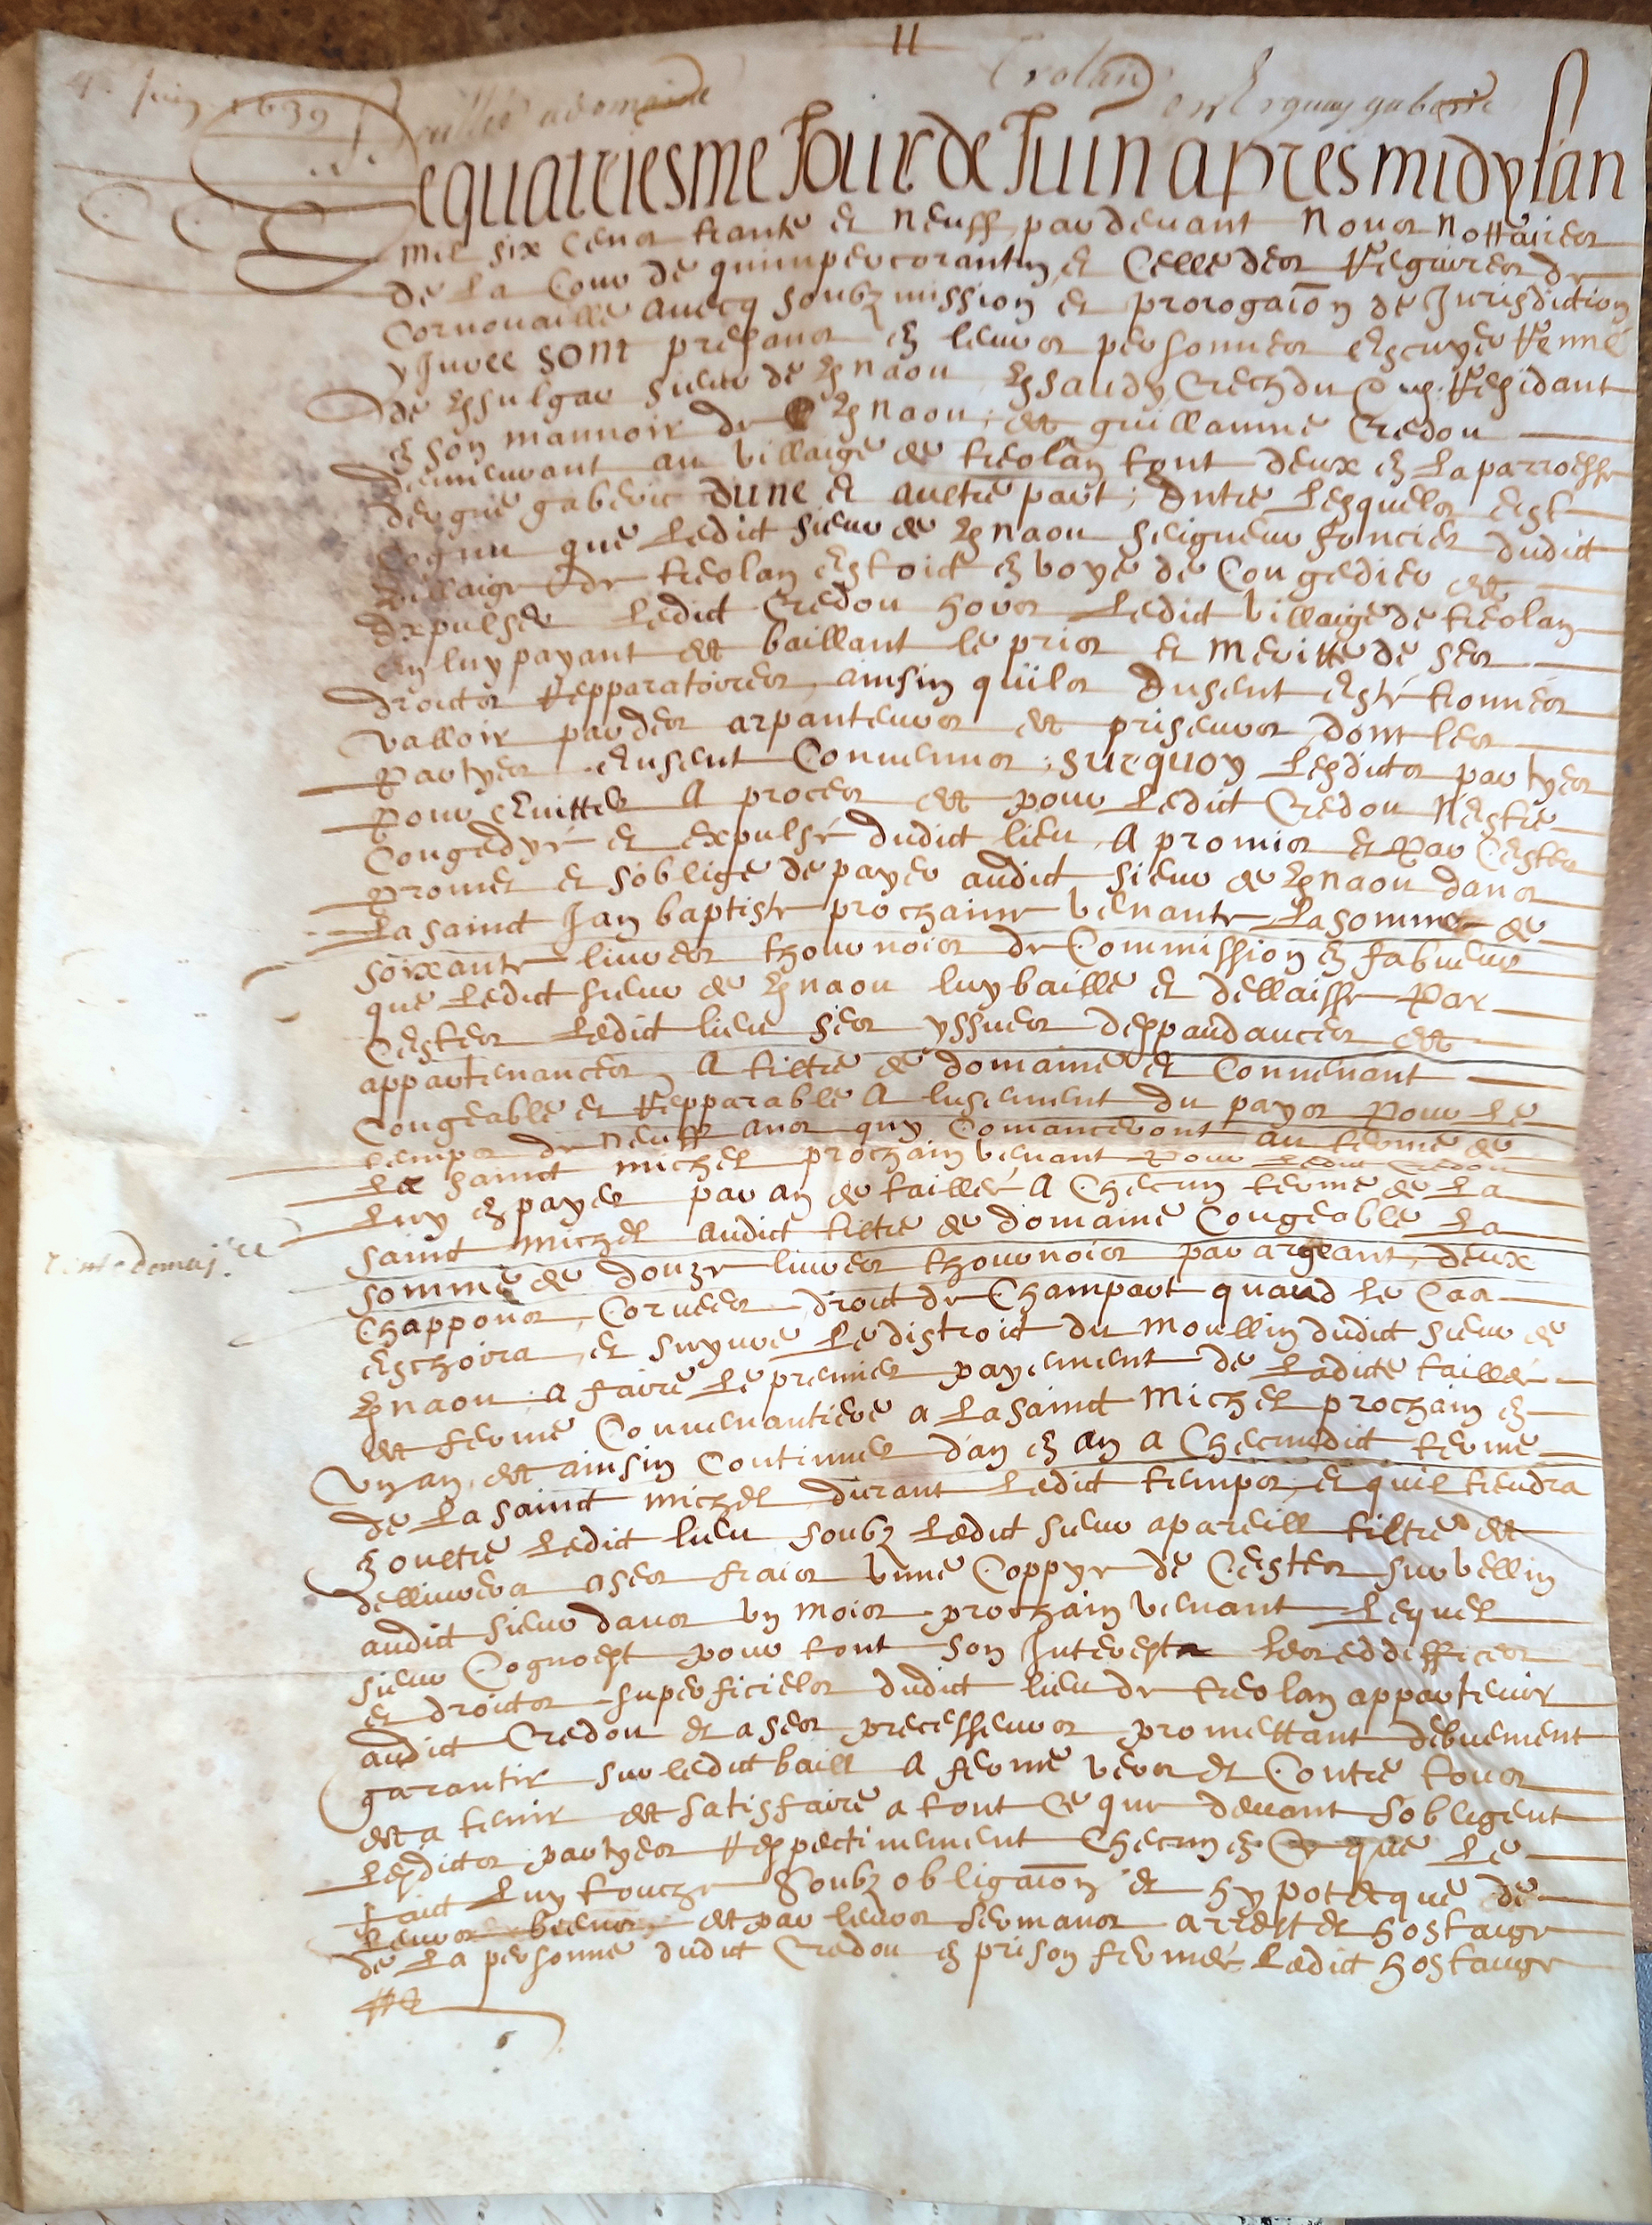 11
4e Juin 1639
Baillee a domaine
Trolan
en Erguay gaberic
Le quatriesme Jour de Juin apres midy lan
mil six cens trante et neuff, par devant Nous Nottaires
de la Cour de quimpercorantin, et Celle des Regaires de
Cornouaille avecq soubzmission et prorogaion de Jurisdiction
y Juree sont presans en leurs personnes Escuyer Renné
de Kersulgar sieur de Kernaou, Kersaudy Crechdu Residant
en son mannoir de Kernaou, et guillaume Credou
demeurant au villaige de treolan tout deux en la parroesse
dergue gaberic dune et aultre part, Entre lesquels est
cognu que ledict sieur de Kernaou seigneur foncier dudict
villaige de treolan estoict en voye de Congedier et
Expulser ledict Credou hors ledict villaige de treolan
En luy payant et baillant le prios et meritte de ses
droicts Repparatoires, ainsin quils Eusent esté trouvés
valloir par des arpanteurs et priseurs dont les
partyes Eusent Convenus, surquoy lesdicts partyes
pour Evitter a proces et pour ledict Credou Nestre
Congedyé et expulsé dudict lieu A promis et par Cestes
promet et soblige de payer audict sieur de Kernaou dans
la sainct Jan baptiste prochaine venante la somme de
soixante livres thournois de Commission en fabveur
que ledict sieur de Kernaou luy baille et dellaisse par
Cestes ledict lieu ses yssues deppandances et
appartenances, A tiltre de domaine et Convenant
Congeable et Repparable A lusement du pays pour le
temps de neuff ans quy Comanceront au terme de
la sainct michel prochain venant pour ledict Credou
luy en payer par an de taillée A Checun terme de la
sainct michel audict tiltre de domaine Congeable la
Rente domaniere
somme de douze livres thournois par argeant, deux
Chappons, Corvees, droict de Champart quand le Cas
eschoira, et suyvre le distroict du moullin dudict sieur de
Kernaou, a faire le premier payement de ladicte taillée
et ferme Convenantiere a la sainct Michel prochain en
un an, et ainsin Continuer dan en an a Checundict terme
de la sainct michel durant ledict temps, et quil tiendra
en oultre ledict lieu soubz ledict sieur a pareill tiltre et
dellivrera a ses frais unne Coppye de Cestes sur vellin
audict sieur dans un mois prochain venant lequel
sieur Cognoest pour tout son Interest les eddiffices
et droicts superficiels dudict lieu de treolan appartenir
audict Credou et a ses precesseurs promettant debuement
garantir sur ledict baill A ferme vers et Contre tous
et a tenir et satisfaire a tout Ce que devant sobligent
lesdicts partyes Respectivement Checun en Ce que le
faict luy touche Soubz obligaion et hypotecque de
leurs biens, et par leurs sermans arrest et hostaige
de la personne dudict Credou en prison fermée ledict hostaige